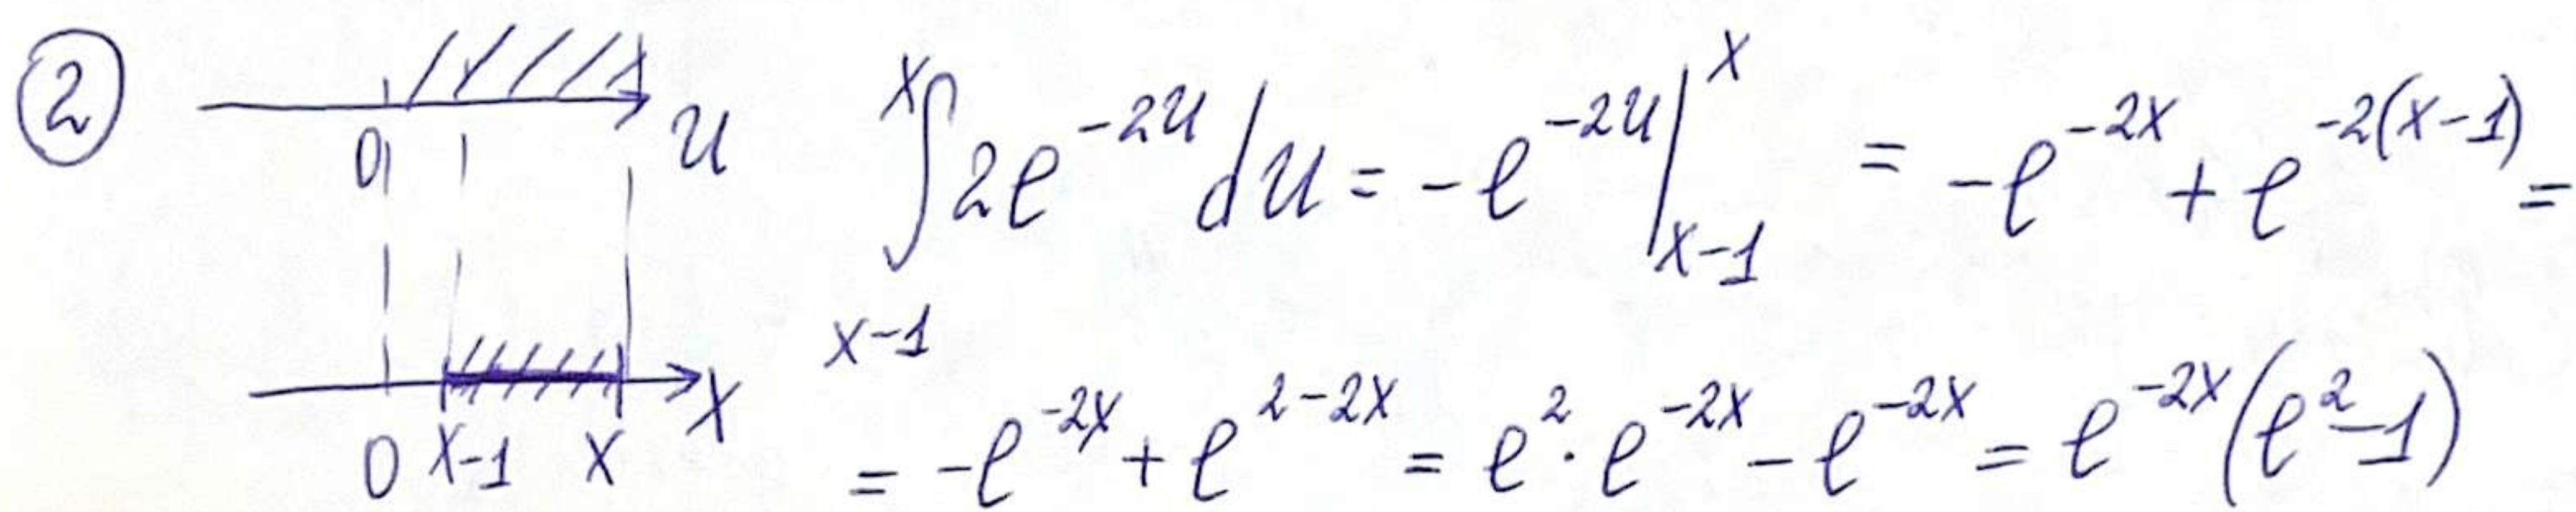 ②
0 u
0 x-1 x X
∫_{x-1}^{x} 2e^{-2u} du = -e^{-2u} |_{x-1}^{x} = -e^{-2x} + e^{-2(x-1)} =
= -e^{-2x} + e^{2-2x} = e^{2} · e^{-2x} - e^{-2x} = e^{-2x} (e^{2} - 1)